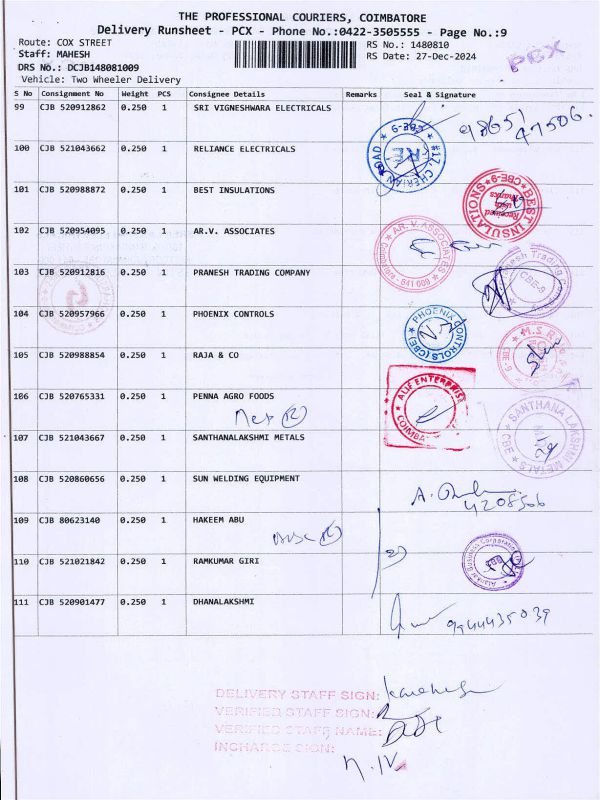 THE PROFESSIONAL COURIERS, COIMBATORE
Delivery Runsheet - PCX - Phone No.:0422-3505555 - Page No.:9
Route: COX STREET
Staff: MAHESH
DRS No.: DCJB148081009
Vehicle: Two Wheeler Delivery
RS No.: 1480810
RS Date: 27-Dec-2024
PCX
S No Consignment No Weight PCS Consignee Details Remarks Seal & Signature
99 CJB 520912862 0.250 1 SRI VIGNESHWARA ELECTRICALS
98651
47506.
100 CJB 521043662 0.250 1 RELIANCE ELECTRICALS
#17, CHERIAN ROAD CBE-9
101 CJB 520988872 0.250 1 BEST INSULATIONS
BEST INSULATIONS CBE-9
Received
102 CJB 520954095 0.250 1 AR.V. ASSOCIATES
AR.V. ASSOCIATES
Coimbatore - 641 009
103 CJB 520912816 0.250 1 PRANESH TRADING COMPANY
CBE-9
104 CJB 520957966 0.250 1 PHOENIX CONTROLS
PHOENIX CONTROLS (CBE)
105 CJB 520988854 0.250 1 RAJA & CO
M.S.R
106 CJB 520765331 0.250 1 PENNA AGRO FOODS
ALIF ENTERPRISE
107 CJB 521043667 0.250 1 SANTHANALAKSHMI METALS
SANTHANA LAKSHMI METALS CBE
108 CJB 520860656 0.250 1 SUN WELDING EQUIPMENT
4208506
109 CJB 80623140 0.250 1 HAKEEM ABU
110 CJB 521021842 0.250 1 RAMKUMAR GIRI
111 CJB 520901477 0.250 1 DHANALAKSHMI
9944435039
DELIVERY STAFF SIGN:
VERIFIED STAFF SIGN:
VERIFIED STAFF NAME:
INCHARGE SIGN: